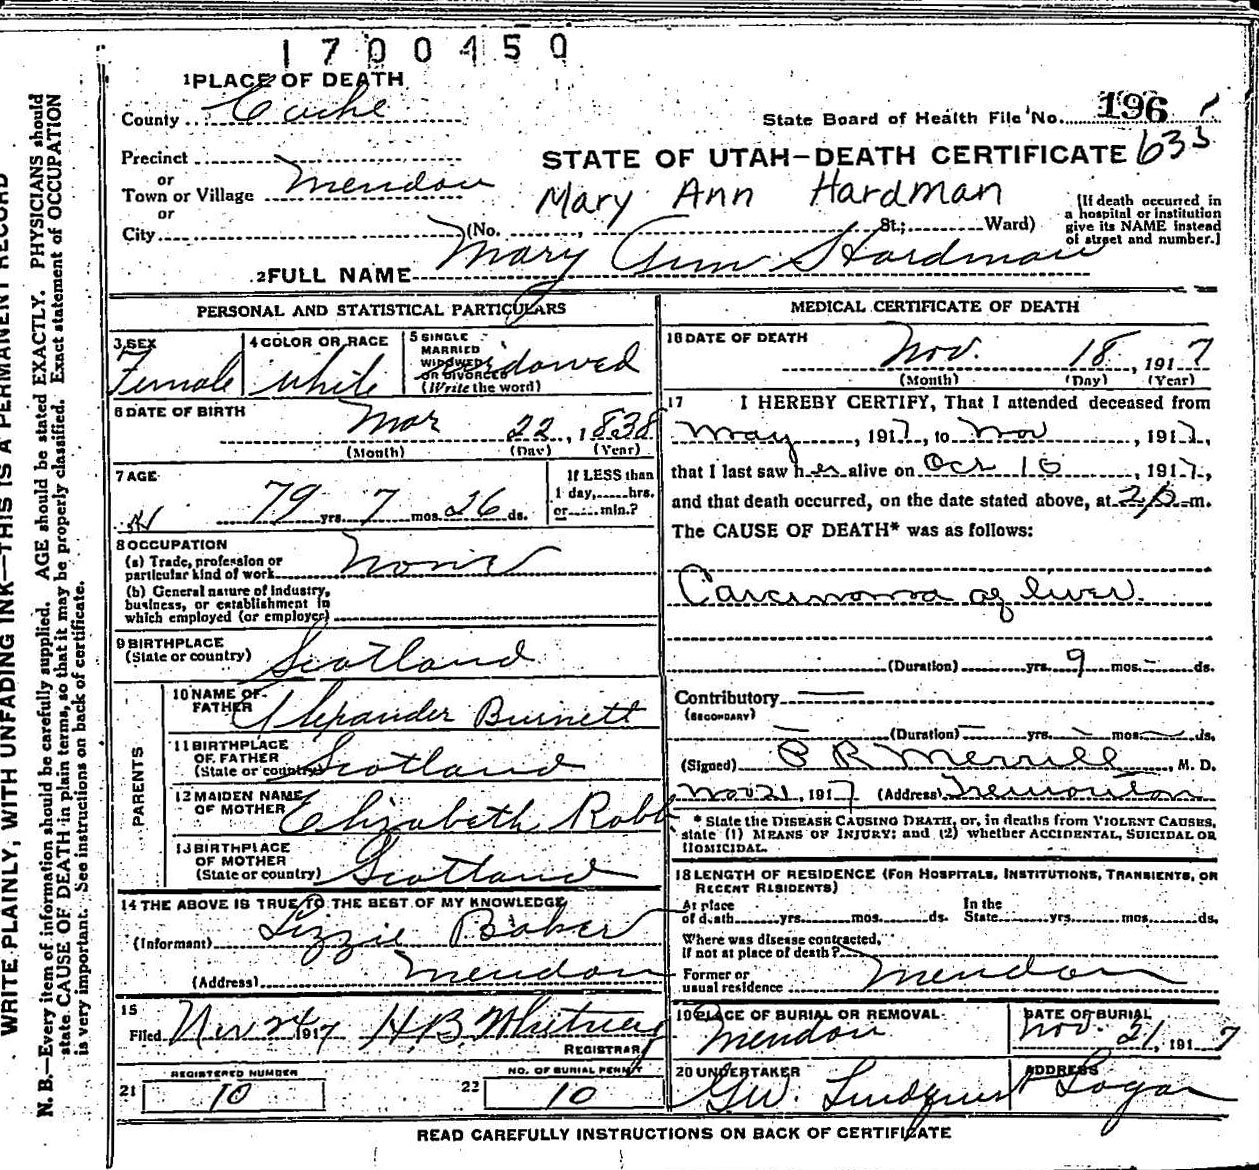 1700450
1 PLACE OF DEATH
County Cache
State Board of Health File No. 196
635
Precinct
or
Town or Village Mendon
or
City
STATE OF UTAH—DEATH CERTIFICATE
Mary Ann Hardman
(No. , St.; Ward)
[If death occurred in a hospital or institution give its NAME instead of street and number.]
2 FULL NAME Mary Ann Hardman
PERSONAL AND STATISTICAL PARTICULARS
3 SEX
Female
4 COLOR OR RACE
white
5 SINGLE
MARRIED
WIDOWED
OR DIVORCED
(Write the word)
widowed
6 DATE OF BIRTH
Mar 22, 1838
(Month) (Day) (Year)
7 AGE
79 yrs. 7 mos. 26 ds.
If LESS than
1 day, hrs.
or min.?
8 OCCUPATION
(a) Trade, profession or
particular kind of work None
(b) General nature of industry,
business, or establishment in
which employed (or employer)
9 BIRTHPLACE
(State or country) Scotland
PARENTS
10 NAME OF
FATHER Alexander Burnett
11 BIRTHPLACE
OF FATHER
(State or country) Scotland
12 MAIDEN NAME
OF MOTHER Elizabeth Robb
13 BIRTHPLACE
OF MOTHER
(State or country) Scotland
14 THE ABOVE IS TRUE TO THE BEST OF MY KNOWLEDGE
(Informant) Lizzie Baker
(Address) Mendon
15
Filed Nov 24 1917 H.B. Whitney
REGISTRAR
21 REGISTERED NUMBER
10
22 NO. OF BURIAL PERMIT
10
MEDICAL CERTIFICATE OF DEATH
16 DATE OF DEATH
Nov. 18, 1917
(Month) (Day) (Year)
17 I HEREBY CERTIFY, That I attended deceased from
May, 1917, to Nov, 1917,
that I last saw her alive on Oct 10, 1917,
and that death occurred, on the date stated above, at m.
The CAUSE OF DEATH* was as follows:
Carcinoma of liver.
(Duration) yrs. 9 mos. – ds.
Contributory —
(SECONDARY)
(Duration) – yrs. – mos. – ds.
(Signed) R Merrill, M. D.
Nov 21, 1917 (Address) Tremonton
* State the DISEASE CAUSING DEATH, or, in deaths from VIOLENT CAUSES,
state (1) MEANS OF INJURY; and (2) whether ACCIDENTAL, SUICIDAL OR
HOMICIDAL.
18 LENGTH OF RESIDENCE (FOR HOSPITALS, INSTITUTIONS, TRANSIENTS, OR
RECENT RESIDENTS)
At place
of death yrs. mos. ds.
In the
State yrs. mos. ds.
Where was disease contracted,
if not at place of death?
Former or
usual residence Mendon
19 PLACE OF BURIAL OR REMOVAL
Mendon
DATE OF BURIAL
Nov. 21, 1917
20 UNDERTAKER
GW. Lindquist
ADDRESS
Logan
READ CAREFULLY INSTRUCTIONS ON BACK OF CERTIFICATE
WRITE PLAINLY, WITH UNFADING INK—THIS IS A PERMANENT RECORD
N. B.—Every item of information should be carefully supplied. AGE should be stated EXACTLY. PHYSICIANS should
state CAUSE OF DEATH in plain terms, so that it may be properly classified. Exact statement of OCCUPATION
is very important. See instructions on back of certificate.